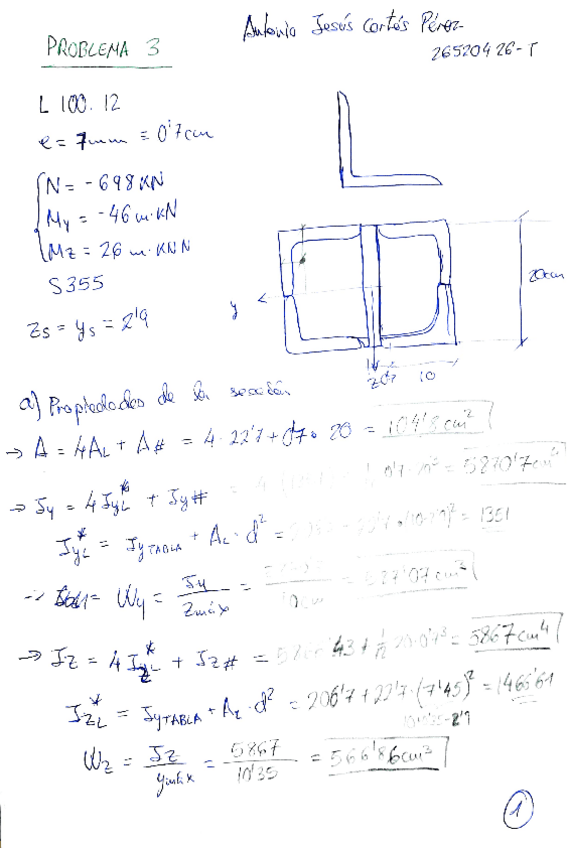 Antonio Jesús Cortés Pérez
PROBLEMA 3
26520426-T
L 100.12
e = 7mm = 0'7cm
N = -698 KN
My = -46 m·kN
Mz = 26 m·KN N
S355
zs = ys = 2'9
20cm
y
z 0'7 10
a) Propiedades de la sección
→ A = 4AL + A# = 4·22'7 + 0'7·20 = 104'8 cm²
→ Jy = 4JyL* + Jy# = 5870'7 cm⁴
JyL* = JyTABLA + AL·d² = 1351
Wy = Jy / zmáx =
→ Jz = 4JzL* + Jz# = 43 + 1/12 20·0'7³ = 5867 cm⁴
JzL* = JyTABLA + AL·d² = 206'7 + 22'7·(7'45)² = 1466'61
Wz = Jz / ymáx = 5867 / 10'35 = 566'86 cm³
1